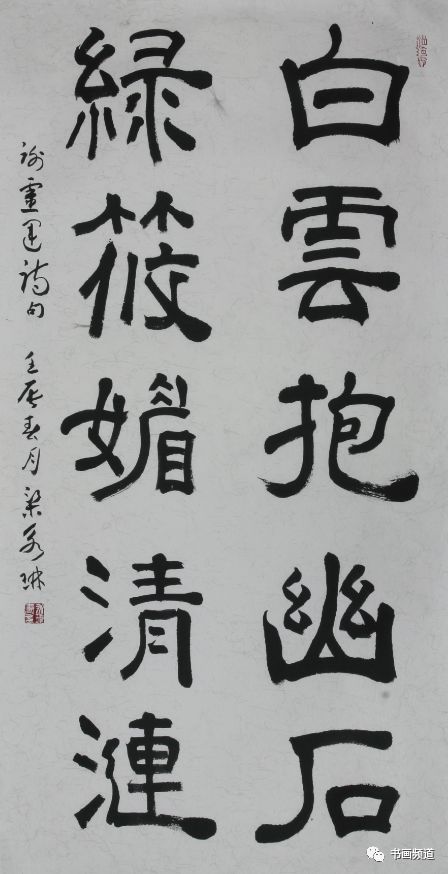 白雲抱幽石
綠筱媚清漣
謝靈運詩句 壬辰春月梁永琳
书画频道